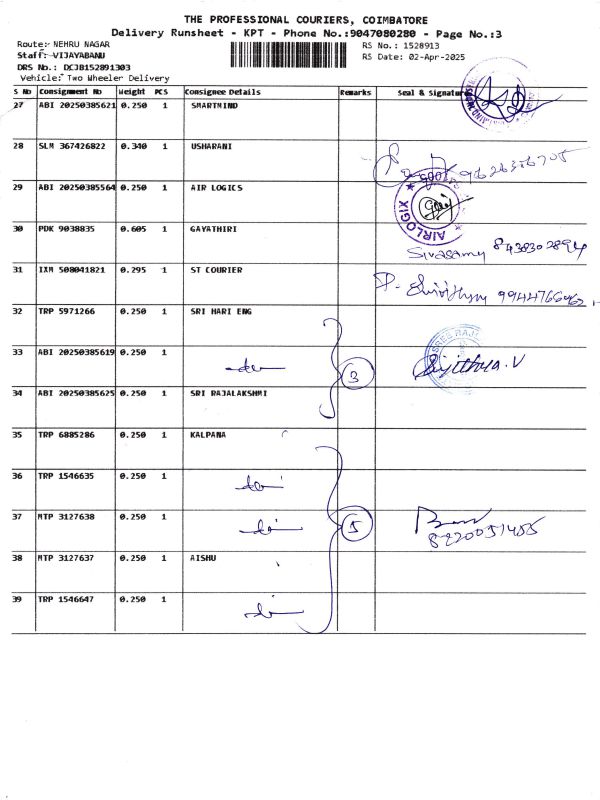 THE PROFESSIONAL COURIERS, COIMBATORE
Delivery Runsheet - KPT - Phone No.:9047080280 - Page No.:3
Route:- NEHRU NAGAR
RS No.: 1528913
Staff:-VIJAYABANU
RS Date: 02-Apr-2025
DRS No.: DCJB152891303
Vehicle:- Two Wheeler Delivery
S No Consignment No Weight PCS Consignee Details Remarks Seal & Signature
27 ABI 20250385621 0.250 1 SMARTMIND
28 SLM 367426822 0.340 1 USHARANI
29 ABI 20250385564 0.250 1 AIR LOGICS
AIRLOGIX
30 PDK 9038835 0.605 1 GAYATHIRI
Sivasamy 8438302894
31 IXM 508041821 0.295 1 ST COURIER
9944766962
32 TRP 5971266 0.250 1 SRI HARI ENG
33 ABI 20250385619 0.250 1
3
34 ABI 20250385625 0.250 1 SRI RAJALAKSHMI
35 TRP 6885286 0.250 1 KALPANA
36 TRP 1546635 0.250 1
37 MTP 3127638 0.250 1
5
8220051455
38 MTP 3127637 0.250 1 AISHU
39 TRP 1546647 0.250 1